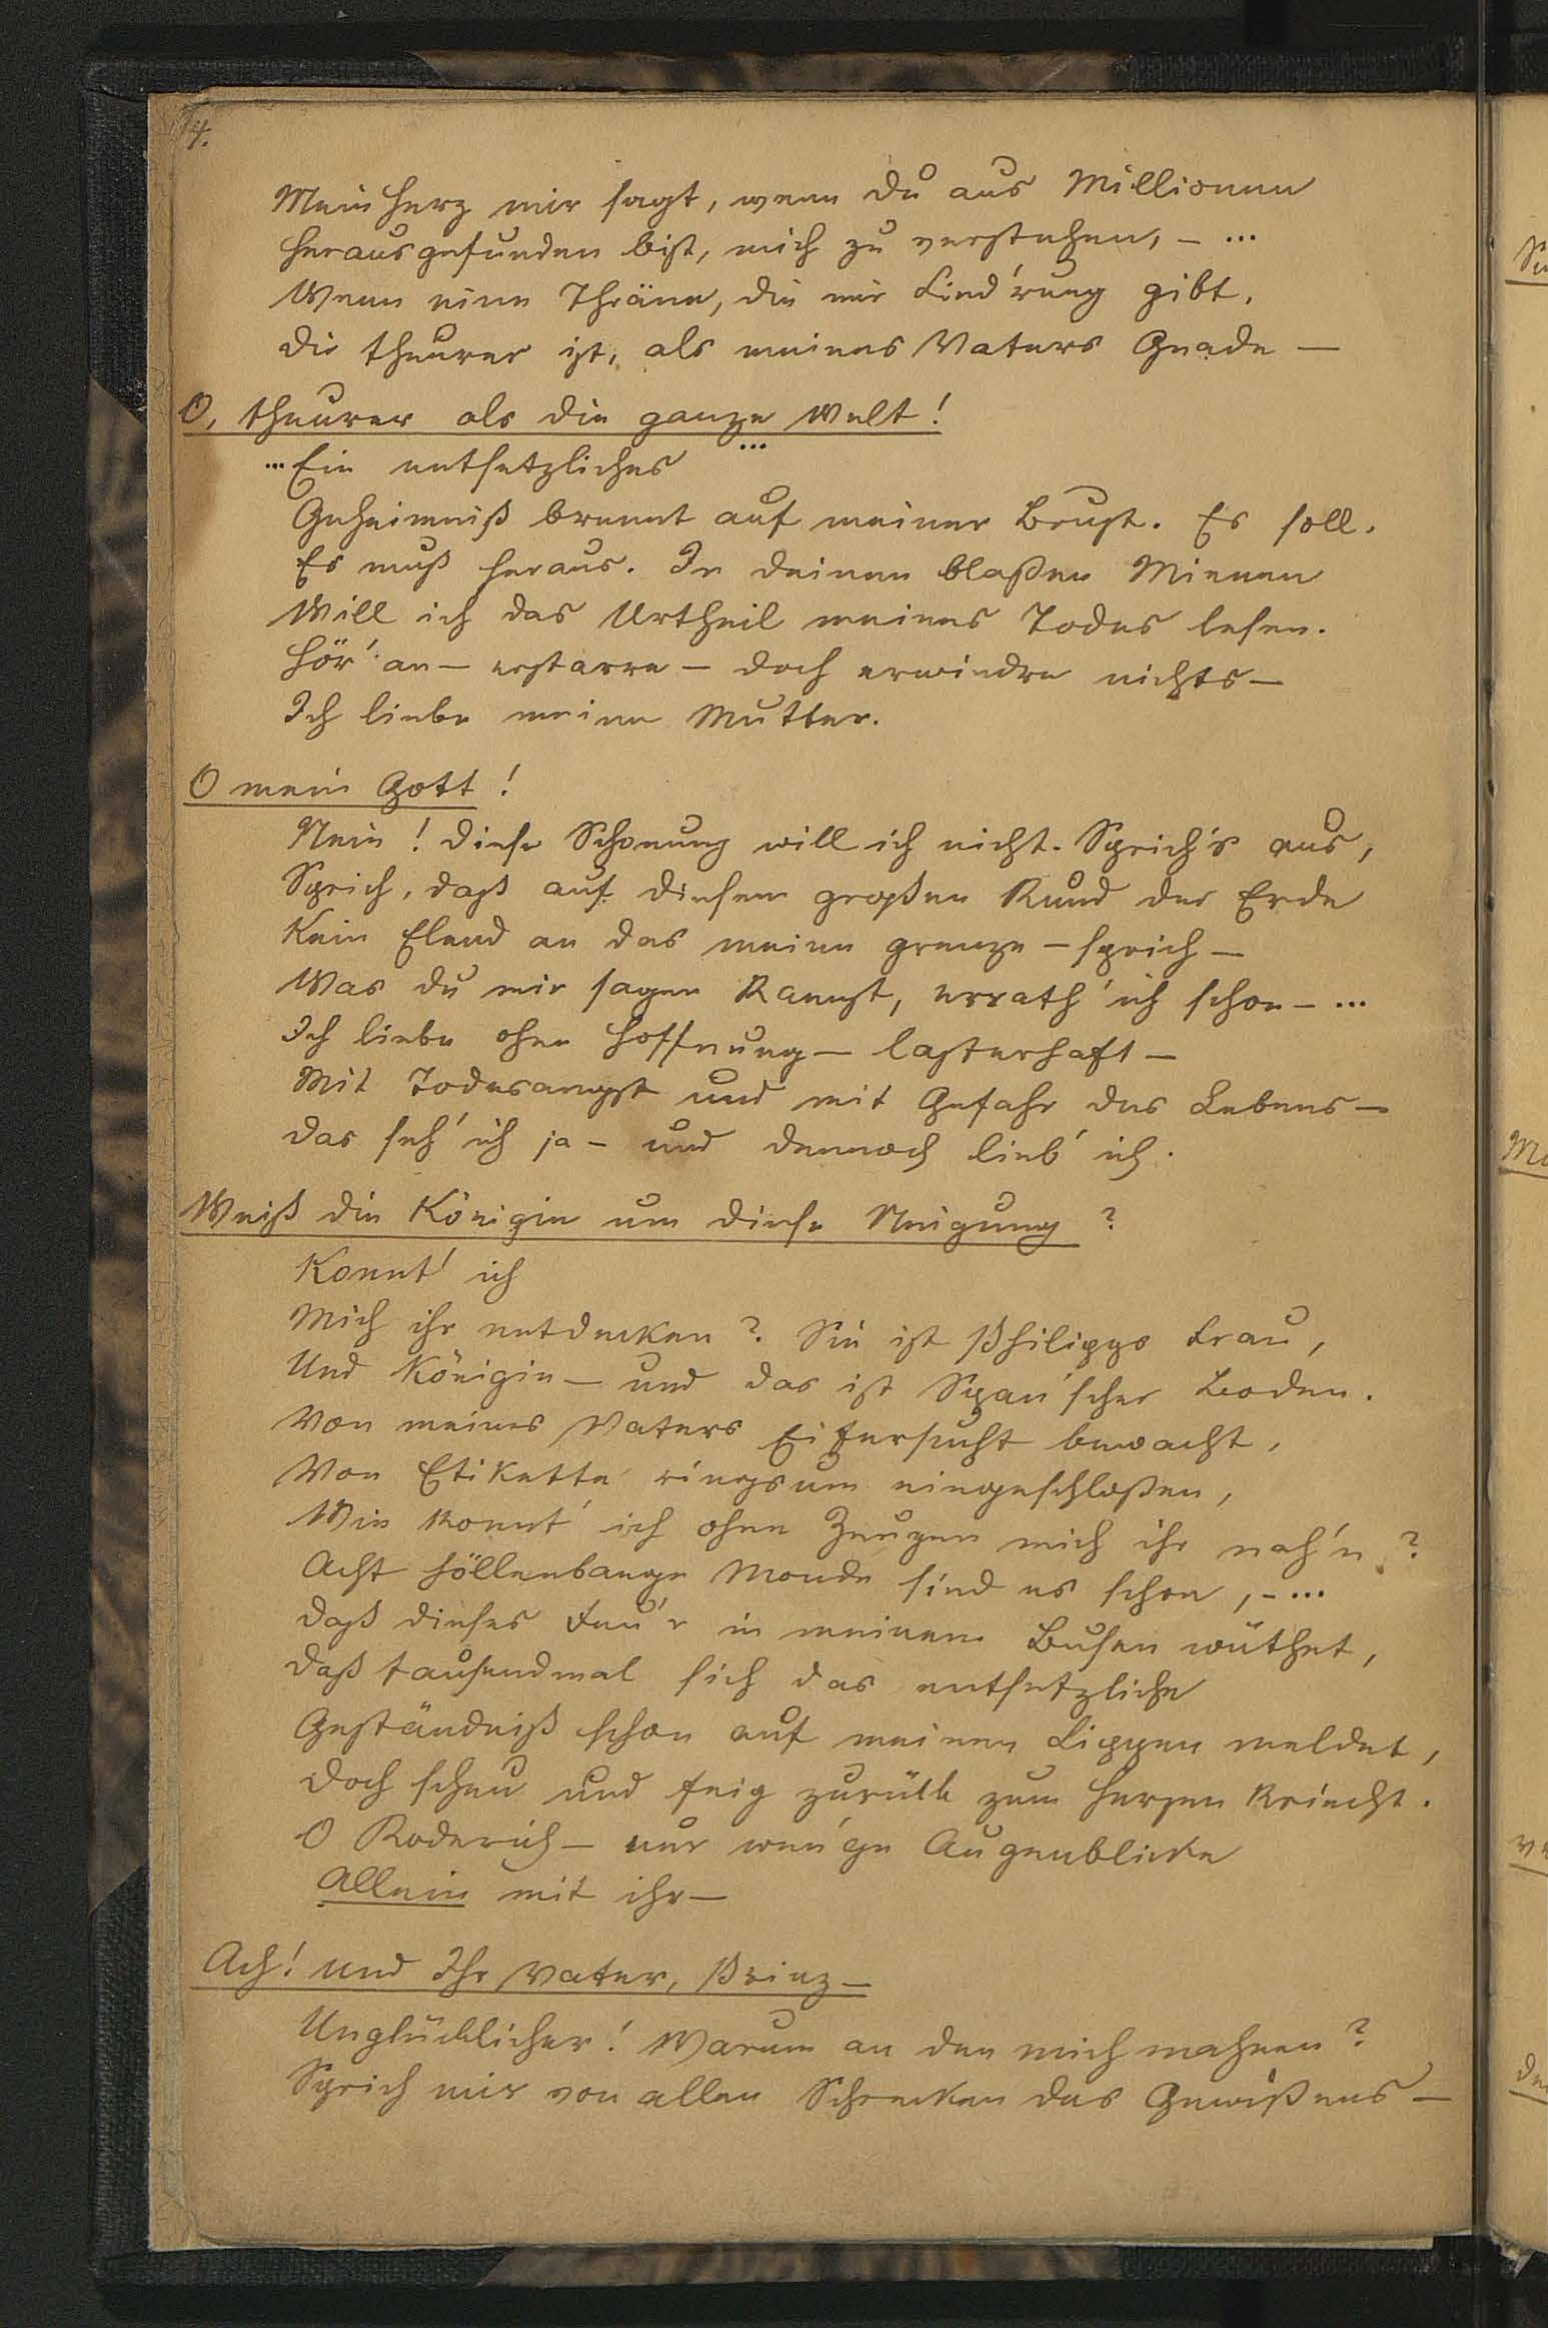 4.
Mein Herz mir sagt, wenn du aus Millionen
Herausgefunden bist, mich zu verstehen, – ...
Wenn eine Thräne, die mir Lind'rung gibt,
Dir theurer ist, als meines Vaters Gnade –
O, theurer als die ganze Welt!
... Ein entsetzliches ...
Geheimniß brennt auf meiner Brust. Es soll,
Es muß heraus. In deinen blaßen Mienen
Will ich das Urtheil meines Todes lesen.
Hör' an – erstarre – doch erwiedre nichts –
Ich liebe meine Mutter.
O mein Gott!
Nein! Diese Schonung will ich nicht. Sprich's aus,
Sprich, daß auf diesem großen Rund der Erde
Kein Elend an das meine grenze – sprich –
Was du mir sagen kannst, errath' ich schon – ...
Ich liebe ohne Hoffnung – lasterhaft –
Mit Todesangst und mit Gefahr des Lebens –
Das seh' ich ja – und dennoch lieb' ich.
Weiß die Königin um diese Neigung?
Konnt' ich
Mich ihr entdecken? Sie ist Philipps Frau,
Und Königin – und das ist Span'scher Boden.
Von meines Vaters Eifersucht bewacht,
Von Etikette ringsum eingeschloßen,
Wie konnt' ich ohne Zeugen mich ihr nah'n?
Acht höllenbange Monde sind es schon, – ...
Daß dieses Feu'r in meinem Busen wüthet,
Daß tausendmal sich das entsetzliche
Geständniß schon auf meinen Lippen meldet,
Doch scheu und feig zurück zum Herzen kriecht.
O Roderich – nur wen'ge Augenblicke
Allein mit ihr –
Ach! und Ihr Vater, Prinz –
Unglücklicher! Warum an den mich mahnen?
Sprich mir von allen Schrecken des Gewißens –